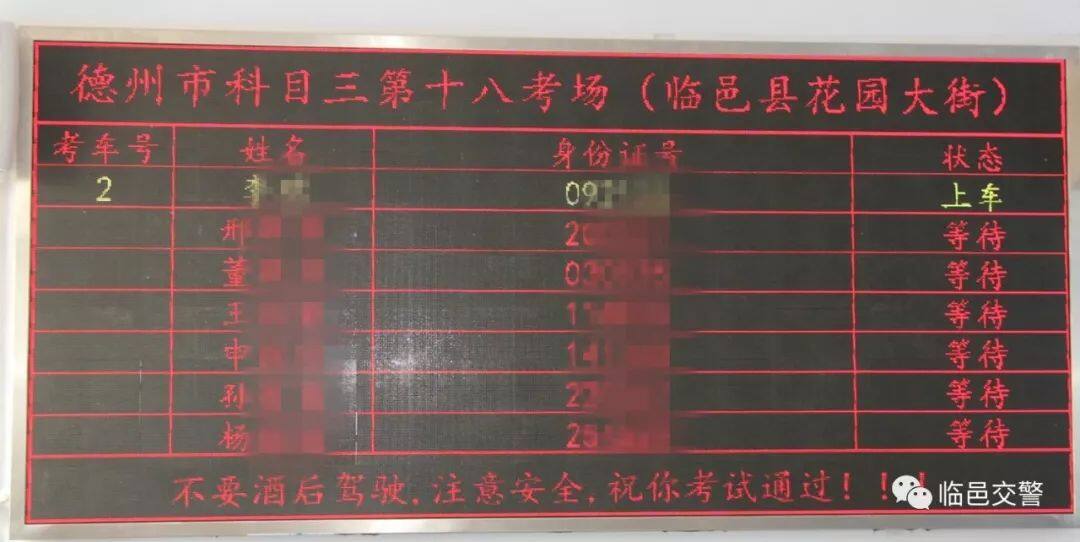 德州市科目三第十八考场（临邑县花园大街）
考车号 姓名 身份证号 状态
2 李 09 上车
邢 20 等待
董 030 等待
王 1 等待
申 14 等待
孙 22 等待
杨 25 等待
不要酒后驾驶.注意安全.祝你考试通过！！！
临邑交警